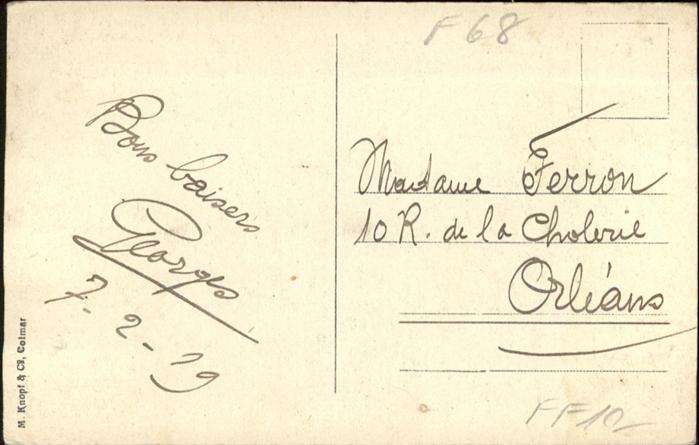 Bons baisers
Georges
7-2-19
F 68
Madame Ferron
10 R. de la Cholerie
Orléans
FF10
M. Knopf & Co, Colmar